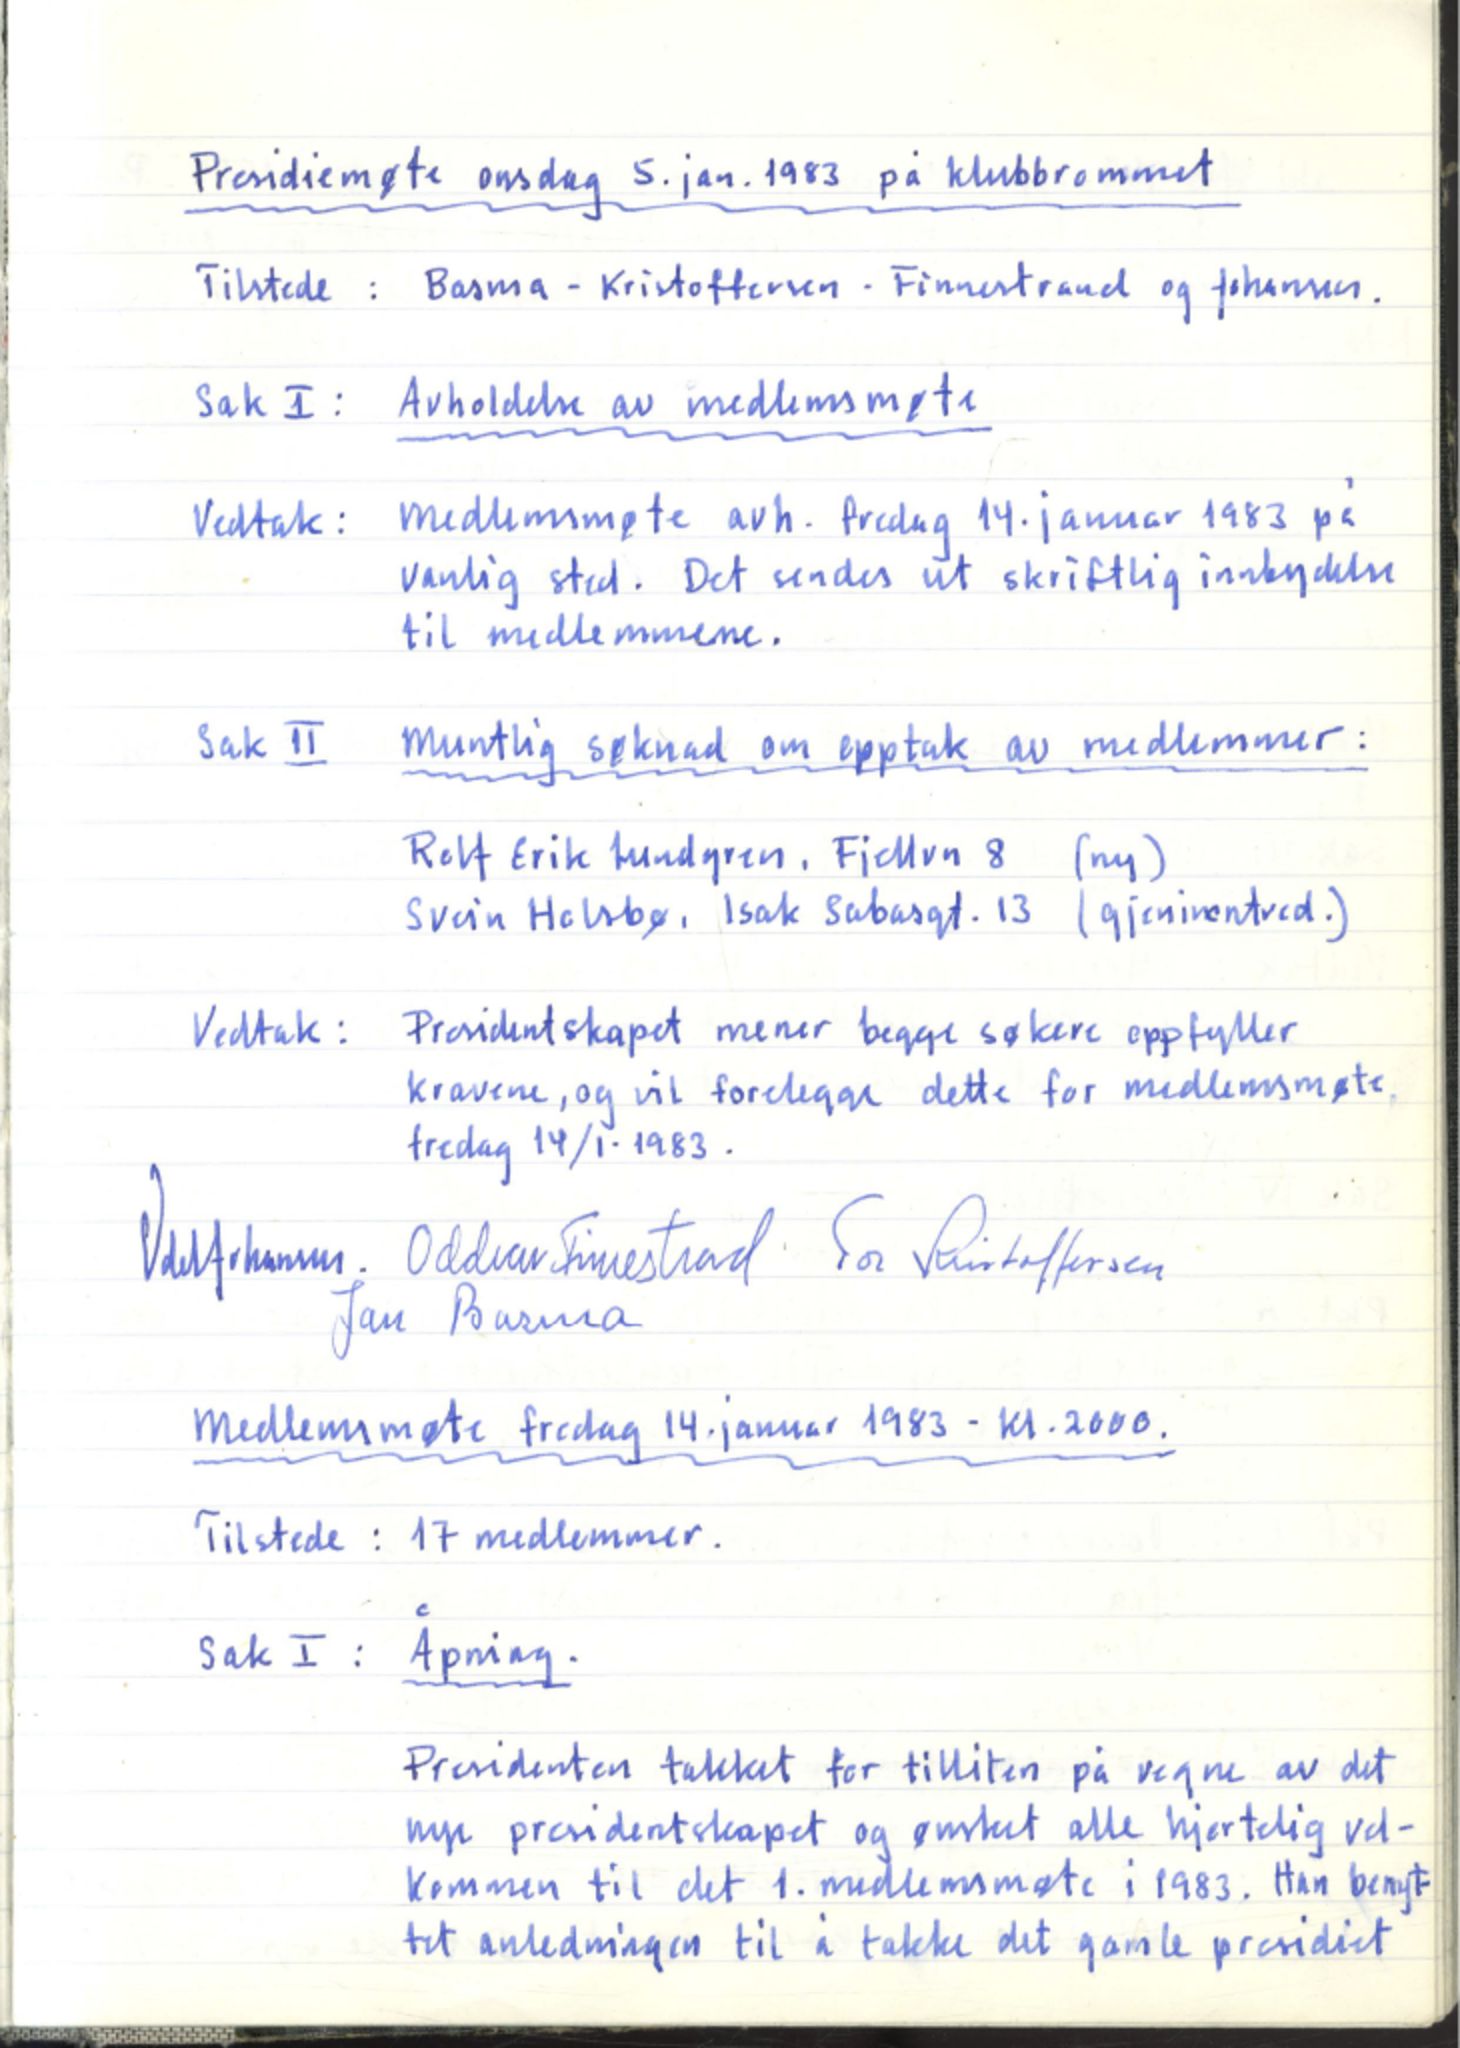 Presidiemøte onsdag 5. jan. 1983 på klubbrommet
Tilstede : Basma - Kristoffersen - Finnestrand og Johansen.
Sak I : Avholdelse av medlemsmøte
Vedtak : Medlemsmøte avh. fredag 14. januar 1983 på
vanlig sted. Det sendes ut skriftlig innbydelse
til medlemmene.
Sak II Muntlig søknad om opptak av medlemmer :
Rolf Erik Lundgren, Fjellvn 8 (ny)
Svein Holsbø, Isak Sabasgt. 13 (gjeninntred.)
Vedtak : Presidentskapet mener begge søkere oppfyller
kravene, og vil forelegge dette for medlemsmøte,
fredag 14/1-1983.
Johansen. Oddvar Finnestrand Tor Kristoffersen
Jan Basma
Medlemsmøte fredag 14. januar 1983 - kl. 2000.
Tilstede : 17 medlemmer.
Sak I : Åpning.
Presidenten takket for tilliten på vegne av det
nye presidentskapet og ønsket alle hjertelig vel-
kommen til det 1. medlemsmøte i 1983. Han benyt-
tet anledningen til å takke det gamle presidiet